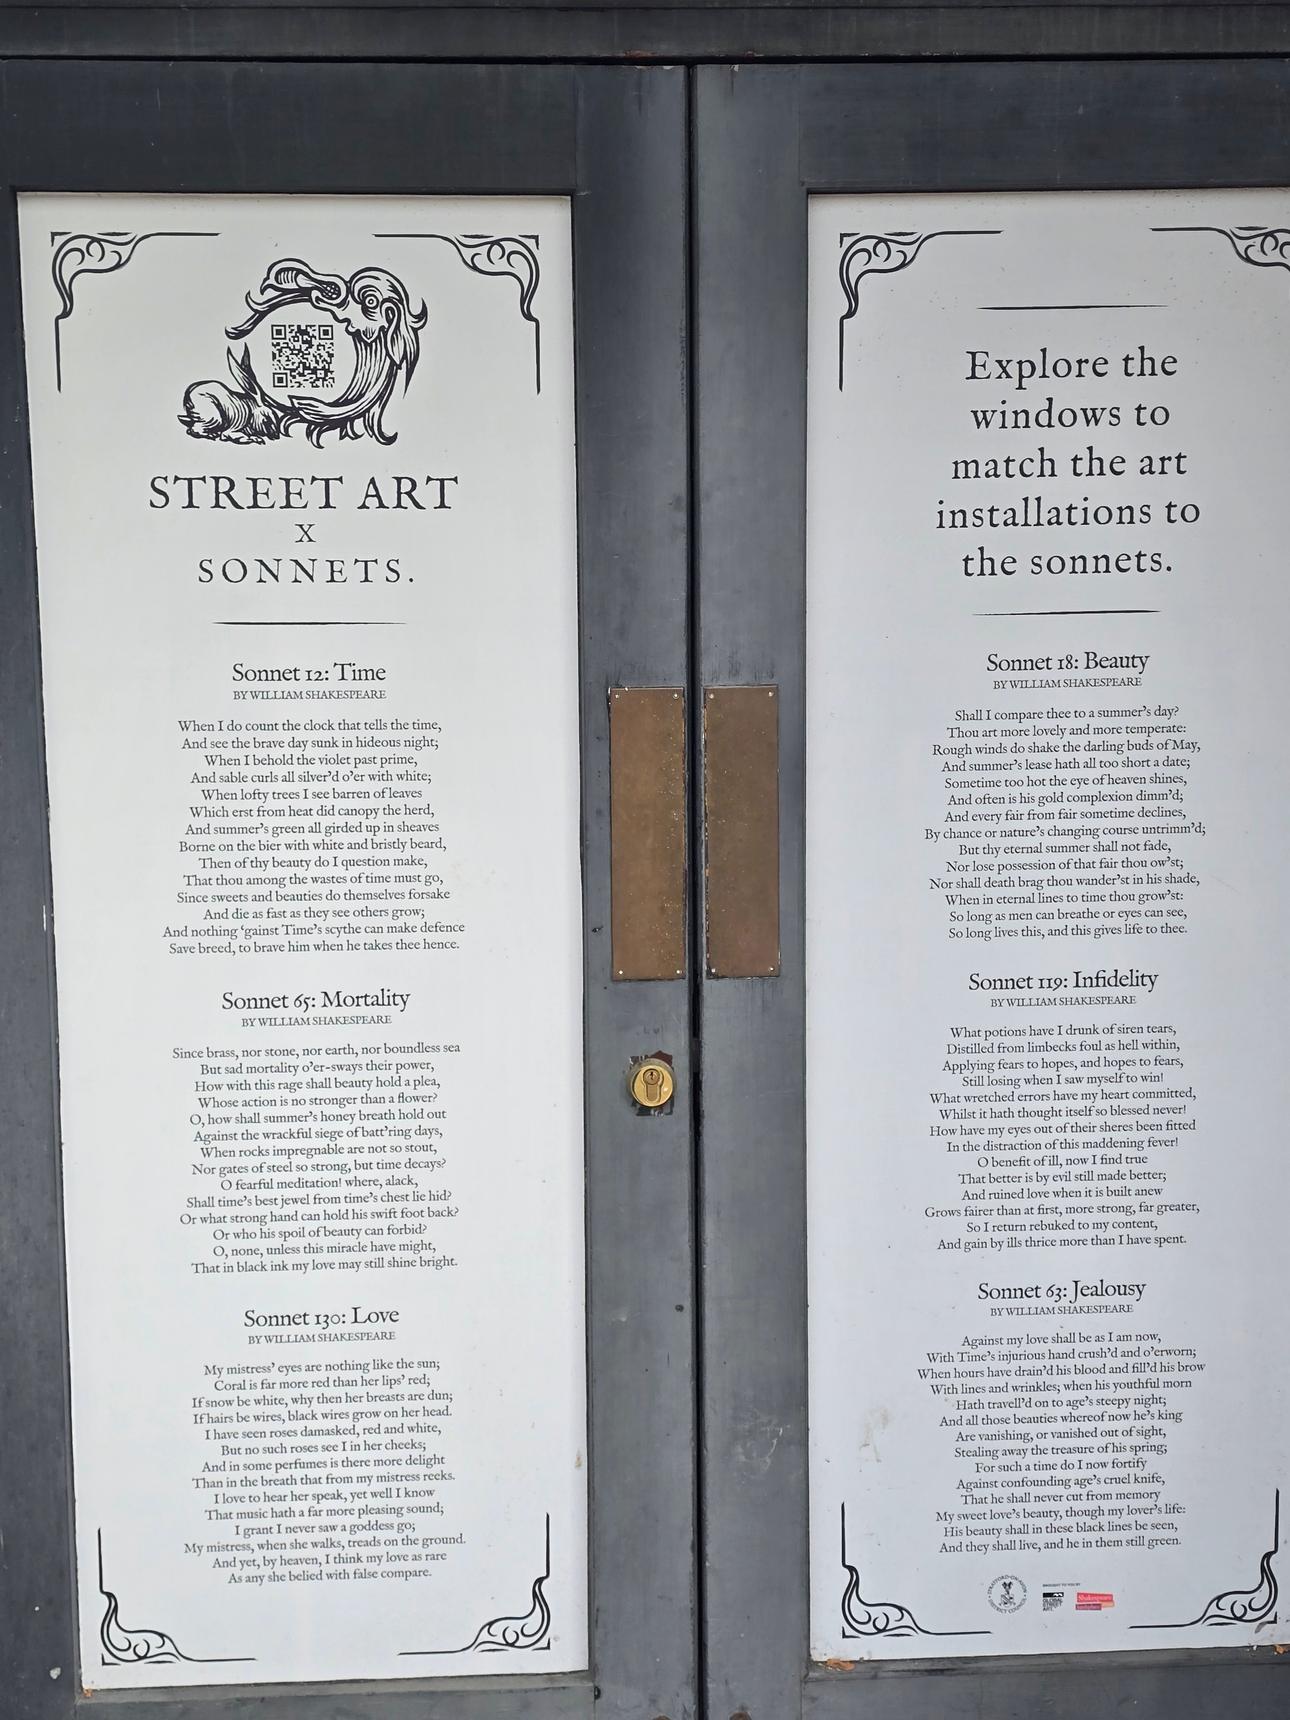 STREET ART
X
SONNETS.
Sonnet 12: Time
BY WILLIAM SHAKESPEARE
When I do count the clock that tells the time,
And see the brave day sunk in hideous night;
When I behold the violet past prime,
And sable curls all silver’d o’er with white;
When lofty trees I see barren of leaves
Which erst from heat did canopy the herd,
And summer’s green all girded up in sheaves
Borne on the bier with white and bristly beard,
Then of thy beauty do I question make,
That thou among the wastes of time must go,
Since sweets and beauties do themselves forsake
And die as fast as they see others grow;
And nothing ‘gainst Time’s scythe can make defence
Save breed, to brave him when he takes thee hence.
Sonnet 65: Mortality
BY WILLIAM SHAKESPEARE
Since brass, nor stone, nor earth, nor boundless sea
But sad mortality o’er-sways their power,
How with this rage shall beauty hold a plea,
Whose action is no stronger than a flower?
O, how shall summer’s honey breath hold out
Against the wrackful siege of batt’ring days,
When rocks impregnable are not so stout,
Nor gates of steel so strong, but time decays?
O fearful meditation! where, alack,
Shall time’s best jewel from time’s chest lie hid?
Or what strong hand can hold his swift foot back?
Or who his spoil of beauty can forbid?
O, none, unless this miracle have might,
That in black ink my love may still shine bright.
Sonnet 130: Love
BY WILLIAM SHAKESPEARE
My mistress’ eyes are nothing like the sun;
Coral is far more red than her lips’ red;
If snow be white, why then her breasts are dun;
If hairs be wires, black wires grow on her head.
I have seen roses damasked, red and white,
But no such roses see I in her cheeks;
And in some perfumes is there more delight
Than in the breath that from my mistress reeks.
I love to hear her speak, yet well I know
That music hath a far more pleasing sound;
I grant I never saw a goddess go;
My mistress, when she walks, treads on the ground.
And yet, by heaven, I think my love as rare
As any she belied with false compare.
Explore the
windows to
match the art
installations to
the sonnets.
Sonnet 18: Beauty
BY WILLIAM SHAKESPEARE
Shall I compare thee to a summer’s day?
Thou art more lovely and more temperate:
Rough winds do shake the darling buds of May,
And summer’s lease hath all too short a date;
Sometime too hot the eye of heaven shines,
And often is his gold complexion dimm’d;
And every fair from fair sometime declines,
By chance or nature’s changing course untrimm’d;
But thy eternal summer shall not fade,
Nor lose possession of that fair thou ow’st;
Nor shall death brag thou wander’st in his shade,
When in eternal lines to time thou grow’st:
So long as men can breathe or eyes can see,
So long lives this, and this gives life to thee.
Sonnet 119: Infidelity
BY WILLIAM SHAKESPEARE
What potions have I drunk of siren tears,
Distilled from limbecks foul as hell within,
Applying fears to hopes, and hopes to fears,
Still losing when I saw myself to win!
What wretched errors have my heart committed,
Whilst it hath thought itself so blessed never!
How have my eyes out of their sheres been fitted
In the distraction of this maddening fever!
O benefit of ill, now I find true
That better is by evil still made better;
And ruined love when it is built anew
Grows fairer than at first, more strong, far greater,
So I return rebuked to my content,
And gain by ills thrice more than I have spent.
Sonnet 63: Jealousy
BY WILLIAM SHAKESPEARE
Against my love shall be as I am now,
With Time’s injurious hand crush’d and o’erworn;
When hours have drain’d his blood and fill’d his brow
With lines and wrinkles; when his youthful morn
Hath travell’d on to age’s steepy night;
And all those beauties whereof now he’s king
Are vanishing, or vanished out of sight,
Stealing away the treasure of his spring;
For such a time do I now fortify
Against confounding age’s cruel knife,
That he shall never cut from memory
My sweet love’s beauty, though my lover’s life:
His beauty shall in these black lines be seen,
And they shall live, and he in them still green.
STRATFORD-ON-AVON
DISTRICT COUNCIL
BROUGHT TO YOU BY
GLOBAL
STREET
ART
Shakespeare's